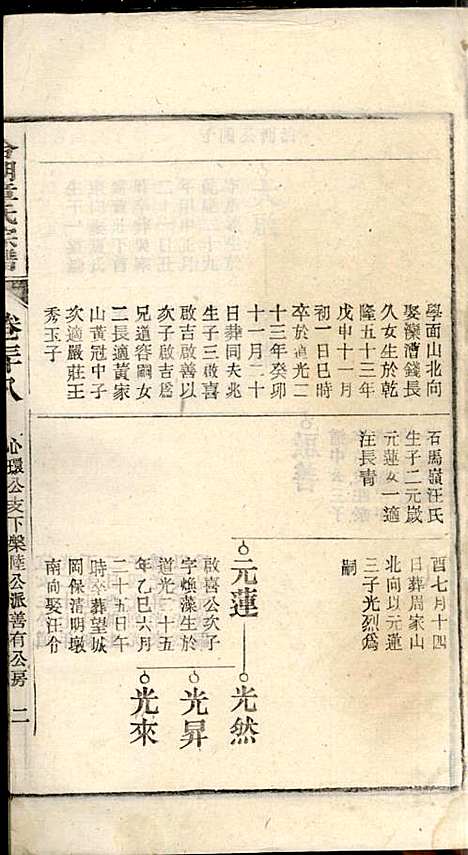 學面山北向
娶灤漕錢長
久女生於乾
隆五十三年
戊申十一月
初一日巳時
卒於道光二
十三年癸卯
十一月二十
日葬同夫兆
生子三啟喜
啟吉啟善以
次子啟吉為
兄道容嗣女
二長適黃家
山黃冠中子
次適嚴莊王
秀玉子
石馬嶺汪氏
生子二元崴
元蓮女一適
汪長青
酉七月十四
日葬周家山
北向以元蓮
三子光烈為
嗣
元蓮
啟喜公次子
字煥藻生於
道光二十五
年乙巳六月
二十五日午
時卒葬望城
岡保清明墩
南向娶汪令
光然
光昇
光來
章氏宗譜
卷三十八
心環公支下榮陸公派善有公房
二